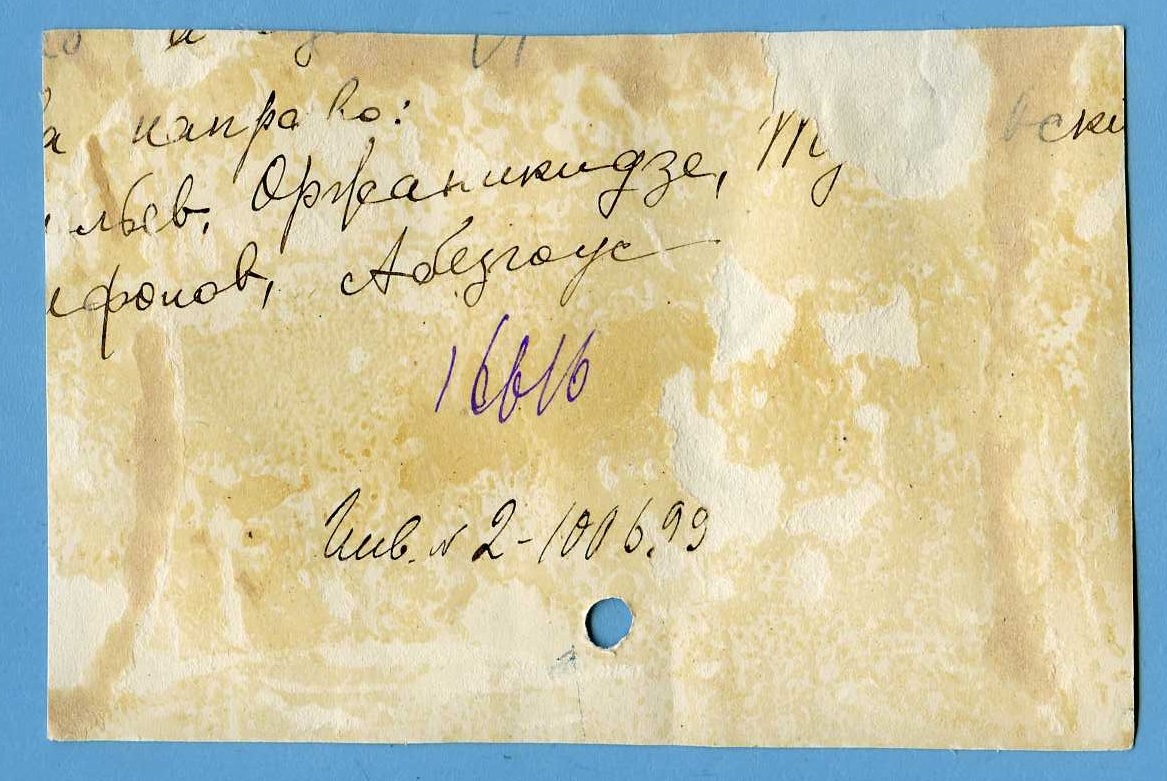 а направо:
льев, Оржаникидзе,
фонов, Абезгоус
16616
Инв. № 2-100699